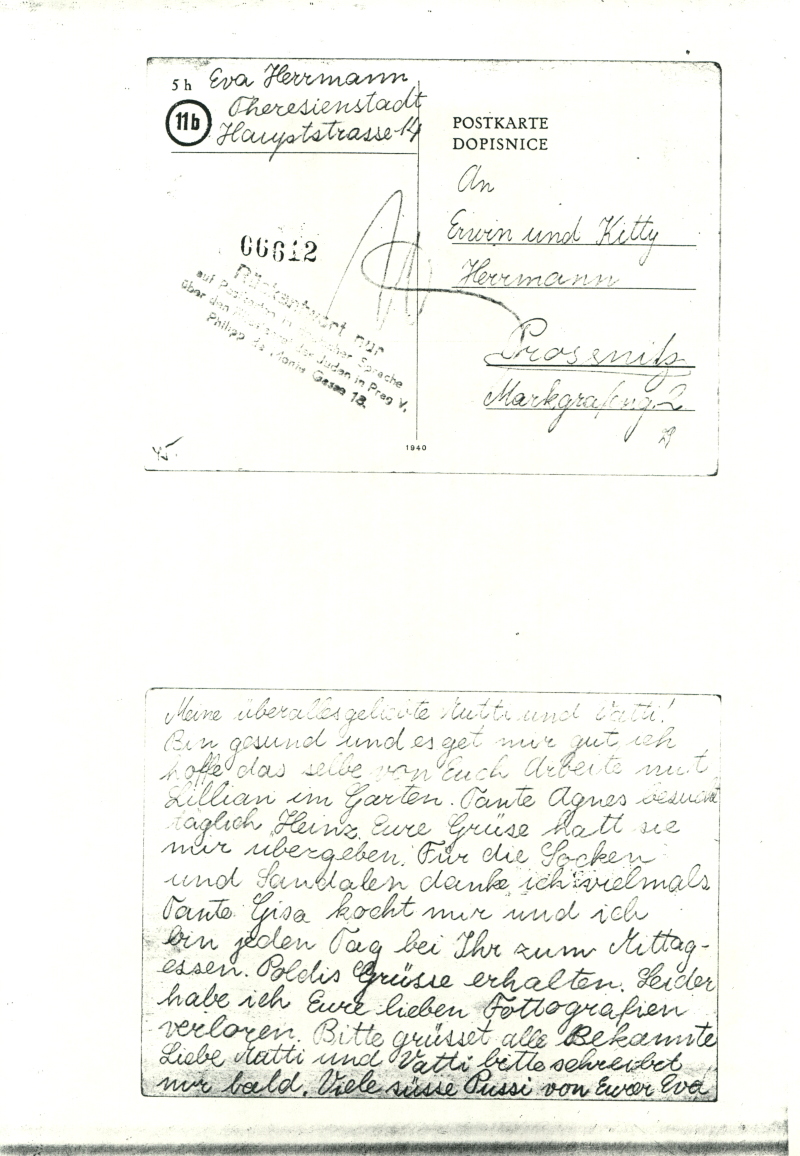 5 h Eva Herrmann
Theresienstadt
11b Hauptstrasse 14
POSTKARTE
DOPISNICE
An
Erwin und Kitty
Herrmann
Prossnitz
Markgrafeng. 2
06612
Rückantwort nur
auf Postkarten in deutscher Sprache
über den der Juden in Prag V,
Philipp de Monte Gasse 18.
1940
Meine überallesgeliebte Mutti und Vatti!
Bin gesund und es get mir gut, ich
hoffe das selbe von Euch Arbeite mit
Lillian im Garten. Tante Agnes besucht
täglich Heinz. Eure Grüse hatt sie
mir übergeben. Für die Socken
und Sandalen danke ich vielmals
Tante Gisa kocht mir und ich
bin jeden Tag bei Ihr zum Mittag-
essen. Poldis Grüsse erhalten. Leider
habe ich Eure lieben Fottografien
verloren. Bitte grüsset alle Bekannte
Liebe Mutti und Vatti bitte schreibet
mir bald. Viele süsse Pussi von Eurer Eva